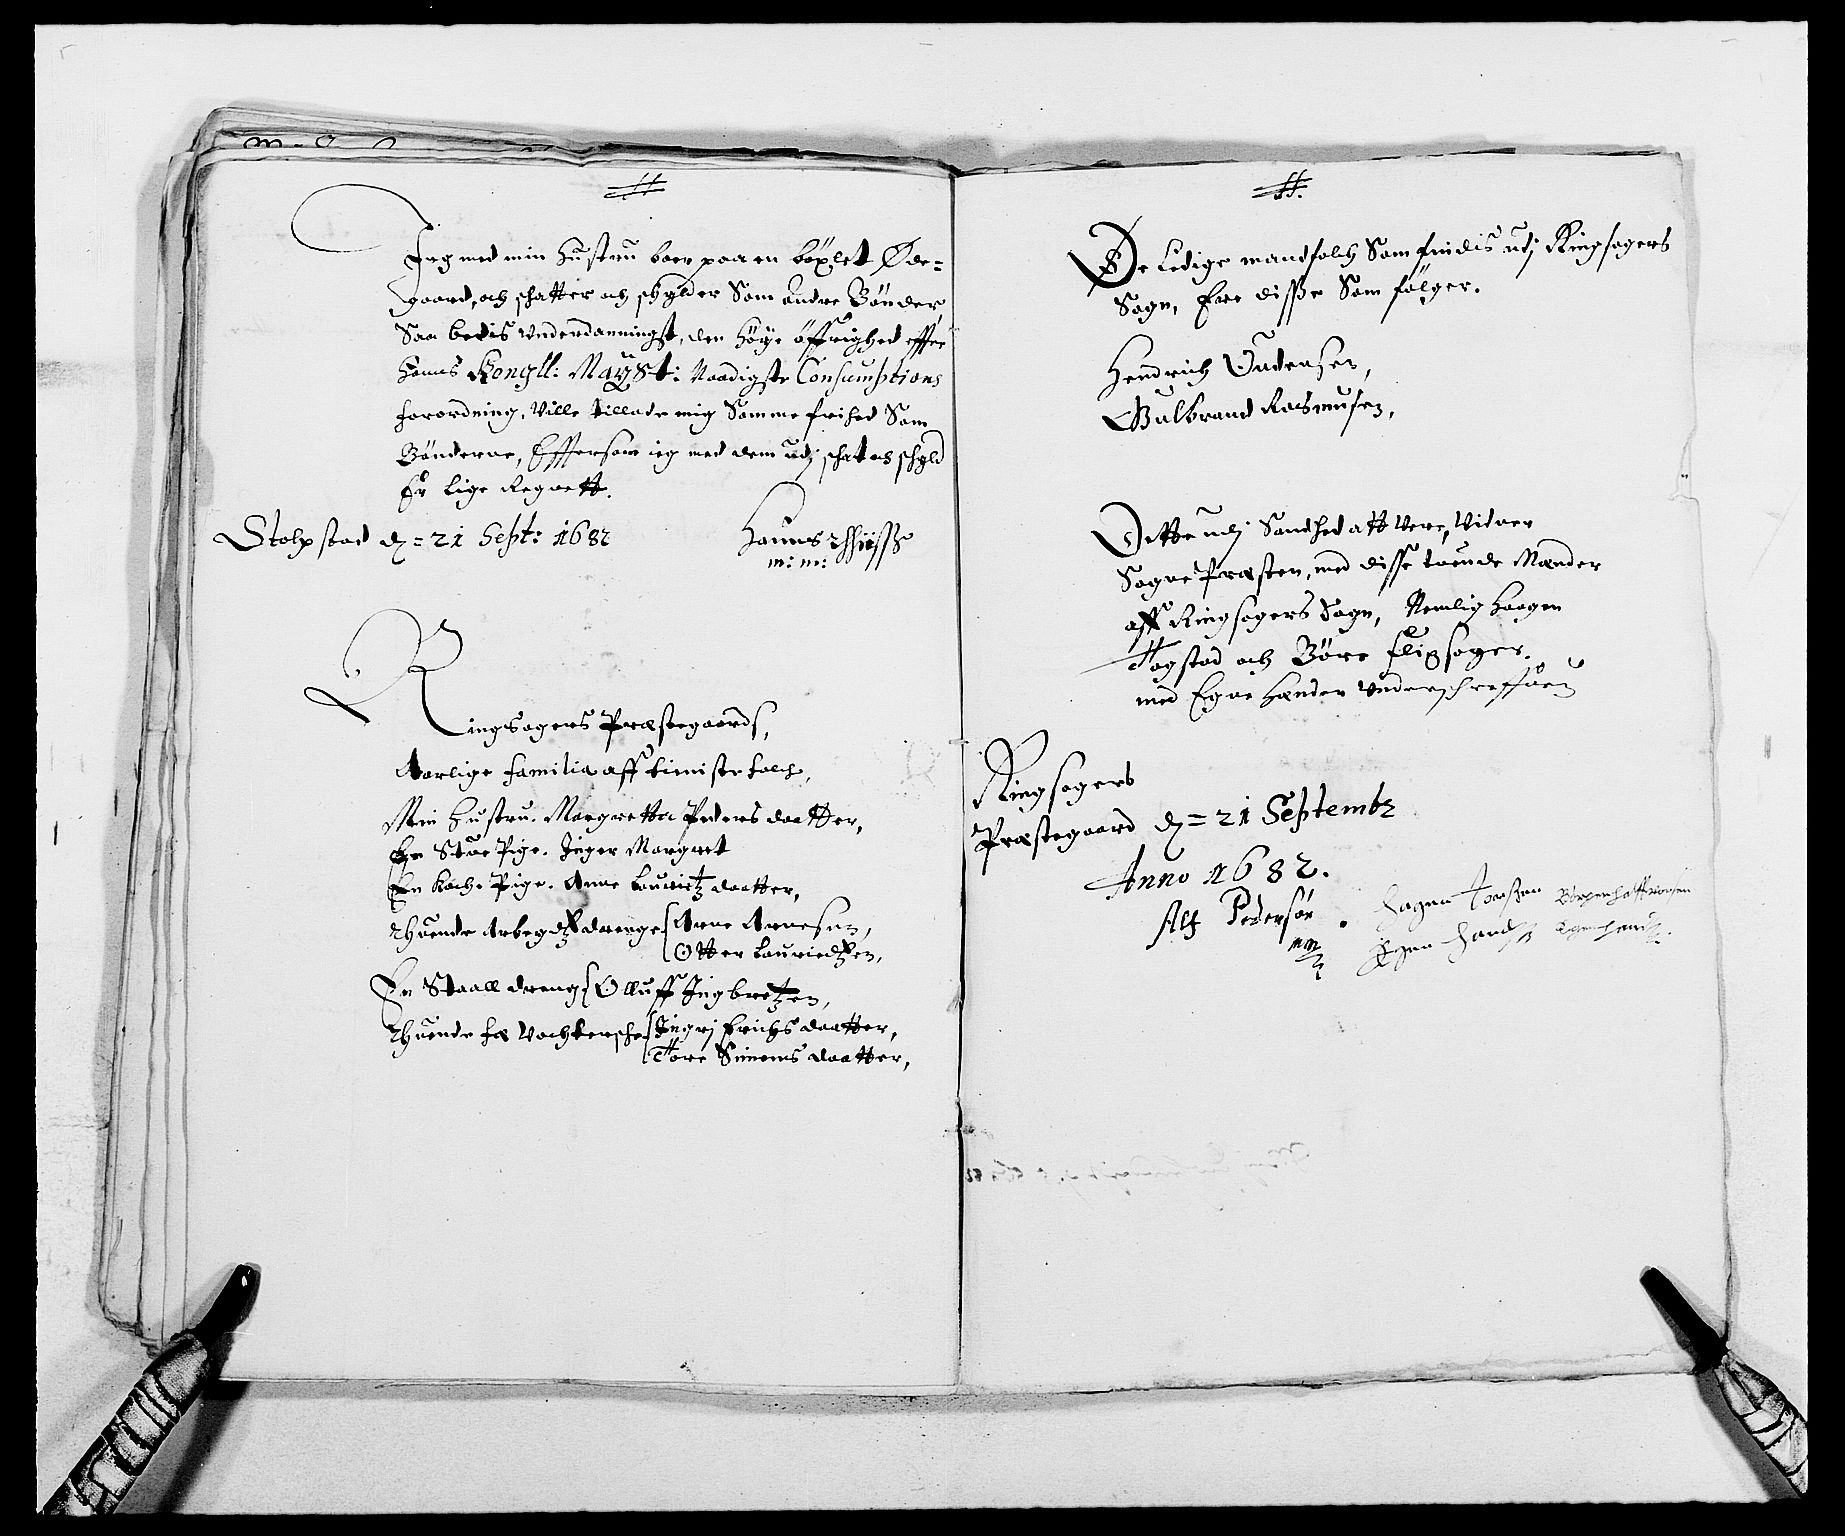 Jeg med min Hustru boer paa en böxlet Øde=
gaard, och schatter och schylder Som andre Bönder
Saa bedis underdanningst, den Höye öffrighed effter
Hanns Kongll: Mayst: Naadigste Consumptions
forordning, Ville tillade mig Samme frihed Som
Bönderne, Effterson ieg med dem udj schat och schyld
Er lige Regnett.
Stolpstad d = 21 Sept: 1682
Hanns
m: m:
Ringsagers Præstegaards,
Aarlige familia aff tieniste folch,
Min Hustru. Margretta Peders daatter,
En Stue Pige. Jnger Margret
En Koche Pige. Anne Lauritz daatter,
Thuende Arbeydtz drenge Arne Arnesen,
Otter Lauriedtzen,
En Staall dreng Olluff Jngbretzen,
Thuende fæ Vochtersche Jngrj Erichs daatter,
Tore Simens daatter,
De Ledige mandfolch Som findis udj Ringsagers
Sogn, Ere disse Som fölger.
Hendrich Oudensen,
Gulbrand Rasmusen,
Dette udj Sandhed att Vere, Vidner
Sogne Præsten, med disse tuende Mænder
aff Ringsagers Sogn, Nemlig Haagen
Hogstad och Böre flipsager.
med Egne Hænder underschreffuen
Ringsagers
Præstegaard d = 21 Septembr
Anno 1682.
Alf Pedersøn
mp
Hagen Joenssen
Egen Hand
Egen hand